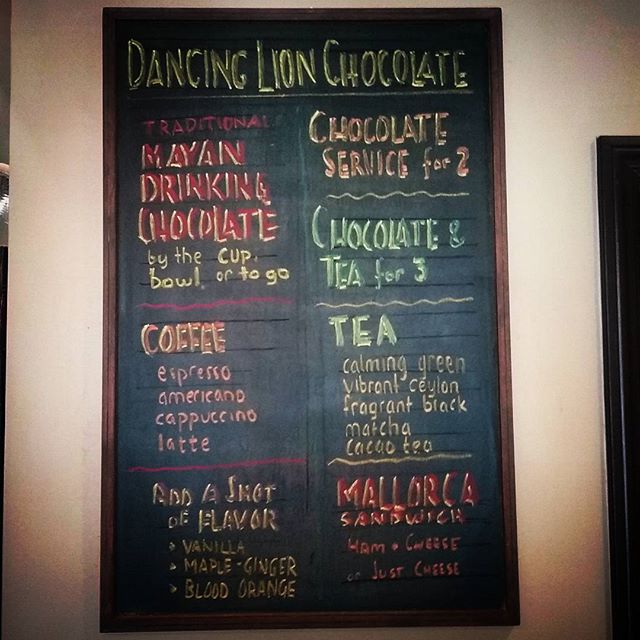 DANCING LION CHOCOLATE
TRADITIONAL
MAYAN
DRINKING
CHOCOLATE
by the CUP,
bowl, or to go
COFFEE
espresso
americano
cappuccino
latte
ADD A SHOT
OF FLAVOR
> VANILLA
> MAPLE-GINGER
> BLOOD ORANGE
CHOCOLATE
SERVICE for 2
CHOCOLATE &
TEA for 3
TEA
calming green
vibrant ceylon
fragrant black
matcha
cacao tea
MALLORCA
SANDWICH
HAM + CHEESE
or JUST CHEESE